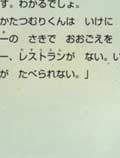 す。わかるでしょ。
かたつむりくんは いけに
ーの さきで おおごえを
ー、レストランが ない。い
が たべられない。」